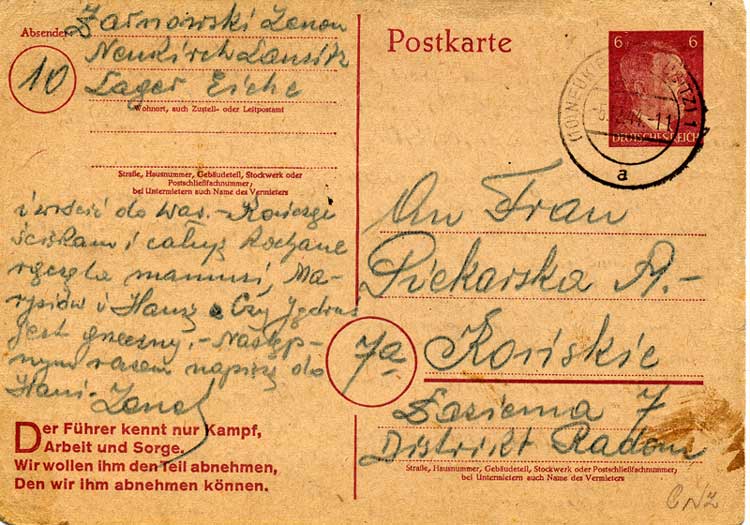 Absender:
Żarnowski Zenon
Neukirch Lausitz
10
Lager Eiche
Wohnort, auch Zustell- oder Leitpostamt
Straße, Hausnummer, Gebäudeteil, Stockwerk oder
Postschließfachnummer;
bei Untermietern auch Name des Vermieters
i wrócić do Was. - Kończę
ściskam i całuję Kochane
rączęta mamusi, Ma-
rysiów i Hanię. Czy Jędruś
jest grzeczny. - Następ-
nym razem napiszę do
Hani - Zenek
Der Führer kennt nur Kampf,
Arbeit und Sorge.
Wir wollen ihm den Teil abnehmen,
Den wir ihm abnehmen können.
Postkarte
6 6
DEUTSCHES REICH
a
An Frau
Piekarska A.-
7a Końskie
Łazienna 7
Distrikt Radom
Straße, Hausnummer, Gebäudeteil, Stockwerk oder Postschließfachnummer;
bei Untermietern auch Name des Vermieters